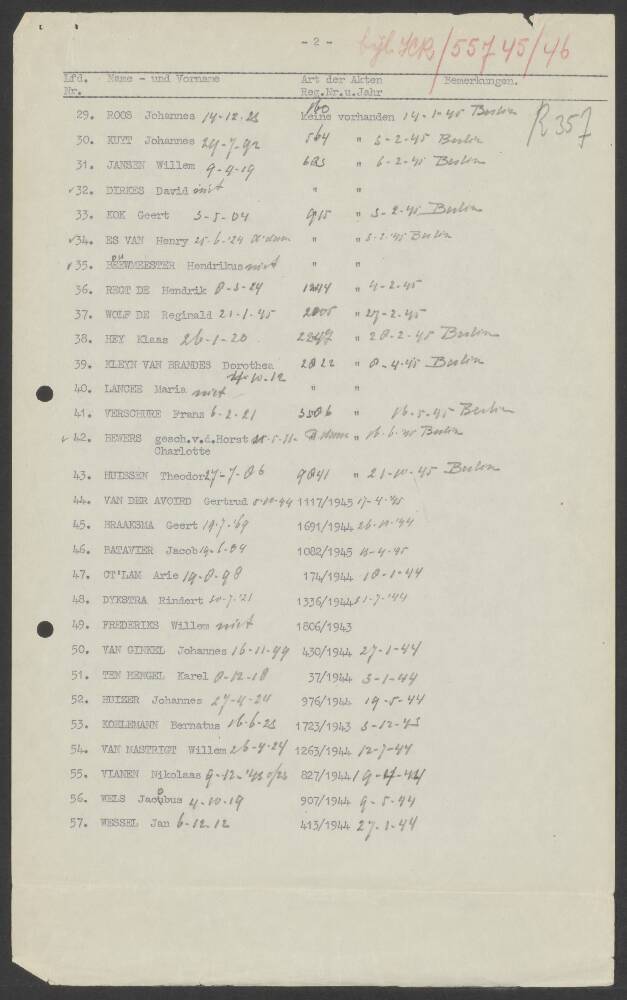 - 2 -
bijl JCR/557 45/46
Lfd. Name - und Vorname Art der Akten Bemerkungen.
Nr. Reg.Nr.u.Jahr
R 357
160
29. ROOS Johannes 14-12-23 keine vorhanden 14-1-45 Berlin
30. KUYT Johannes 24-7-92 564 " 5-2-45 Berlin
31. JANSEN Willem 9-9-19 623 " 6-2-45 Berlin
32. DIRKES David niet " "
33. KOK Geert 3-5-04 915 " 5-2-45 Berlin
34. ES VAN Henry 25-6-'24 A'dam " " 5-2-'45 Berlin
35. BEEWMEESTER Hendrikus niet " "
36. REGT DE Hendrik 8-3-24 1244 " 4-2-45
37. WOLF DE Reginald 21-1-45 2005 " 27-2-45
38. HEY Klaas 26-1-20 2247 " 28-2-45 Berlin
39. KLEYN VAN BRANDES Dorothea 2822 " 8-4-45 Berlin
40. LANCEE Maria niet " "
41. VERSCHURE Frans 6-2-21 3506 " 16-5-45 Berlin
42. BEWERS gesch.v.d.Horst A'dam " 16-6-'45 Berlin
Charlotte
43. HUISSEN Theodor 27-7-06 9841 " 21-10-45 Berlin
44. VAN DER AVOIRD Gertrud 5-10-44 1117/1945 17-4-'45
45. BRAAKSMA Geert 19-7-'69 1691/1944 26-10-'44
46. BATAVIER Jacob 14-6-04 1082/1945 11-4-45
47. CT'LAM Arie 14-8-98 174/1944 18-1-44
48. DYKSTRA Rindert 20-7-'21 1336/1944 21-7-'44
49. FREDERIKS Willem niet 1806/1943
50. VAN GINKEL Johannes 16-11-99 430/1944 27-1-44
51. TEN HENGEL Karel 8-12-18 37/1944 3-1-44
52. HUIZER Johannes 27-4-24 976/1944 19-5-44
53. KOELEMANN Bernatus 16-6-23 1723/1943 3-12-43
54. VAN MASTRIGT Willem 26-4-24 1263/1944 12-7-44
55. VIANEN Nikolaas 9-12-'43 827/1944 19-4-44
56. WELS Jacobus 4-10-19 907/1944 9-5-44
57. WESSEL Jan 6-12-12 413/1944 27-1-44